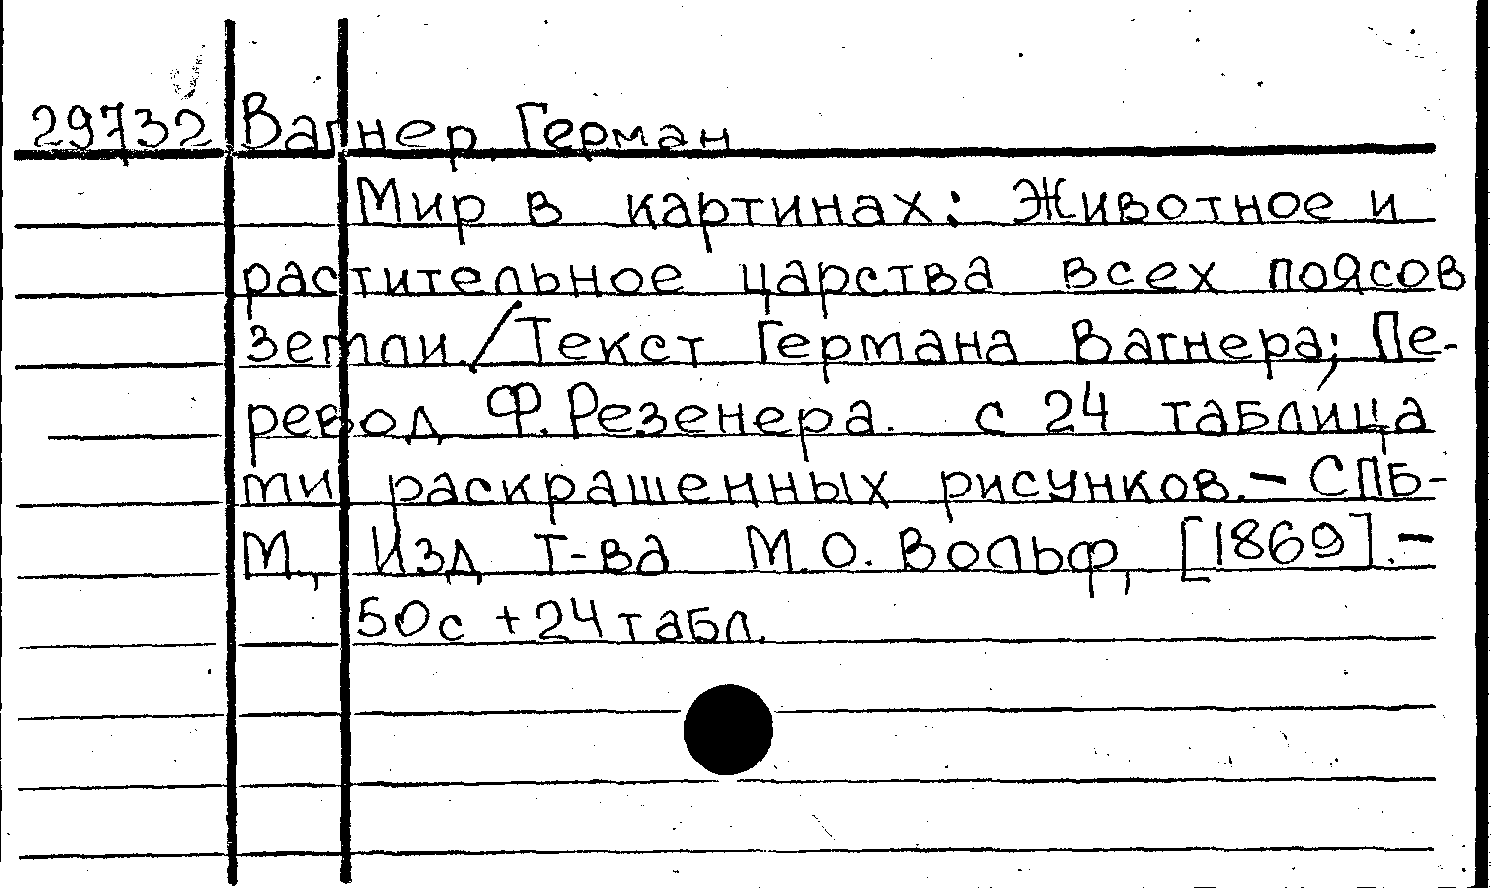 29732 Вагнер Герман
Мир в картинах: Животное и
растительное царства всех поясов
земли/Текст Германа Вагнера; Пе-
ревод Ф. Резенера. с 24 таблица
ми раскрашенных рисунков.- СПБ-
М, Изд т-ва М.О. Вольф, [1869].-
50с + 24 табл.